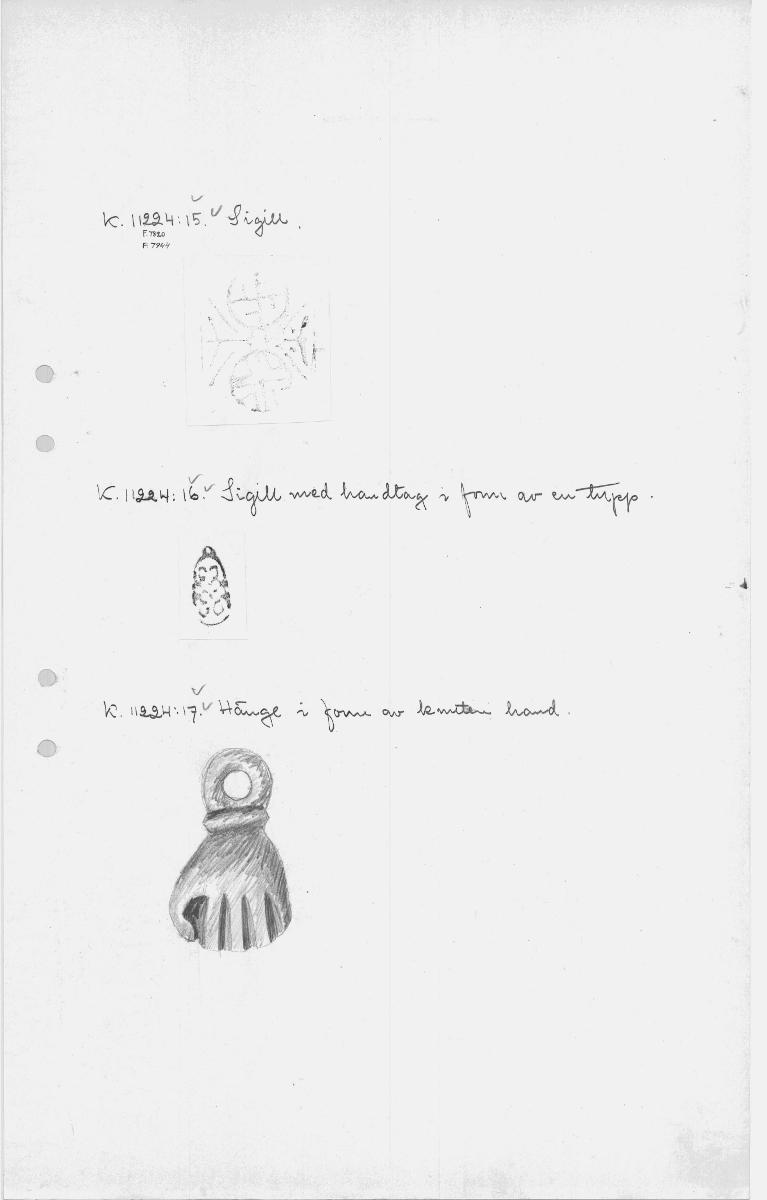 K. 11224:15. Sigill.
F. 7820
F. 7944
K. 11224:16. Sigill med handtag i form av en tupp.
K. 11224:17. Hänge i form av knuten hand.